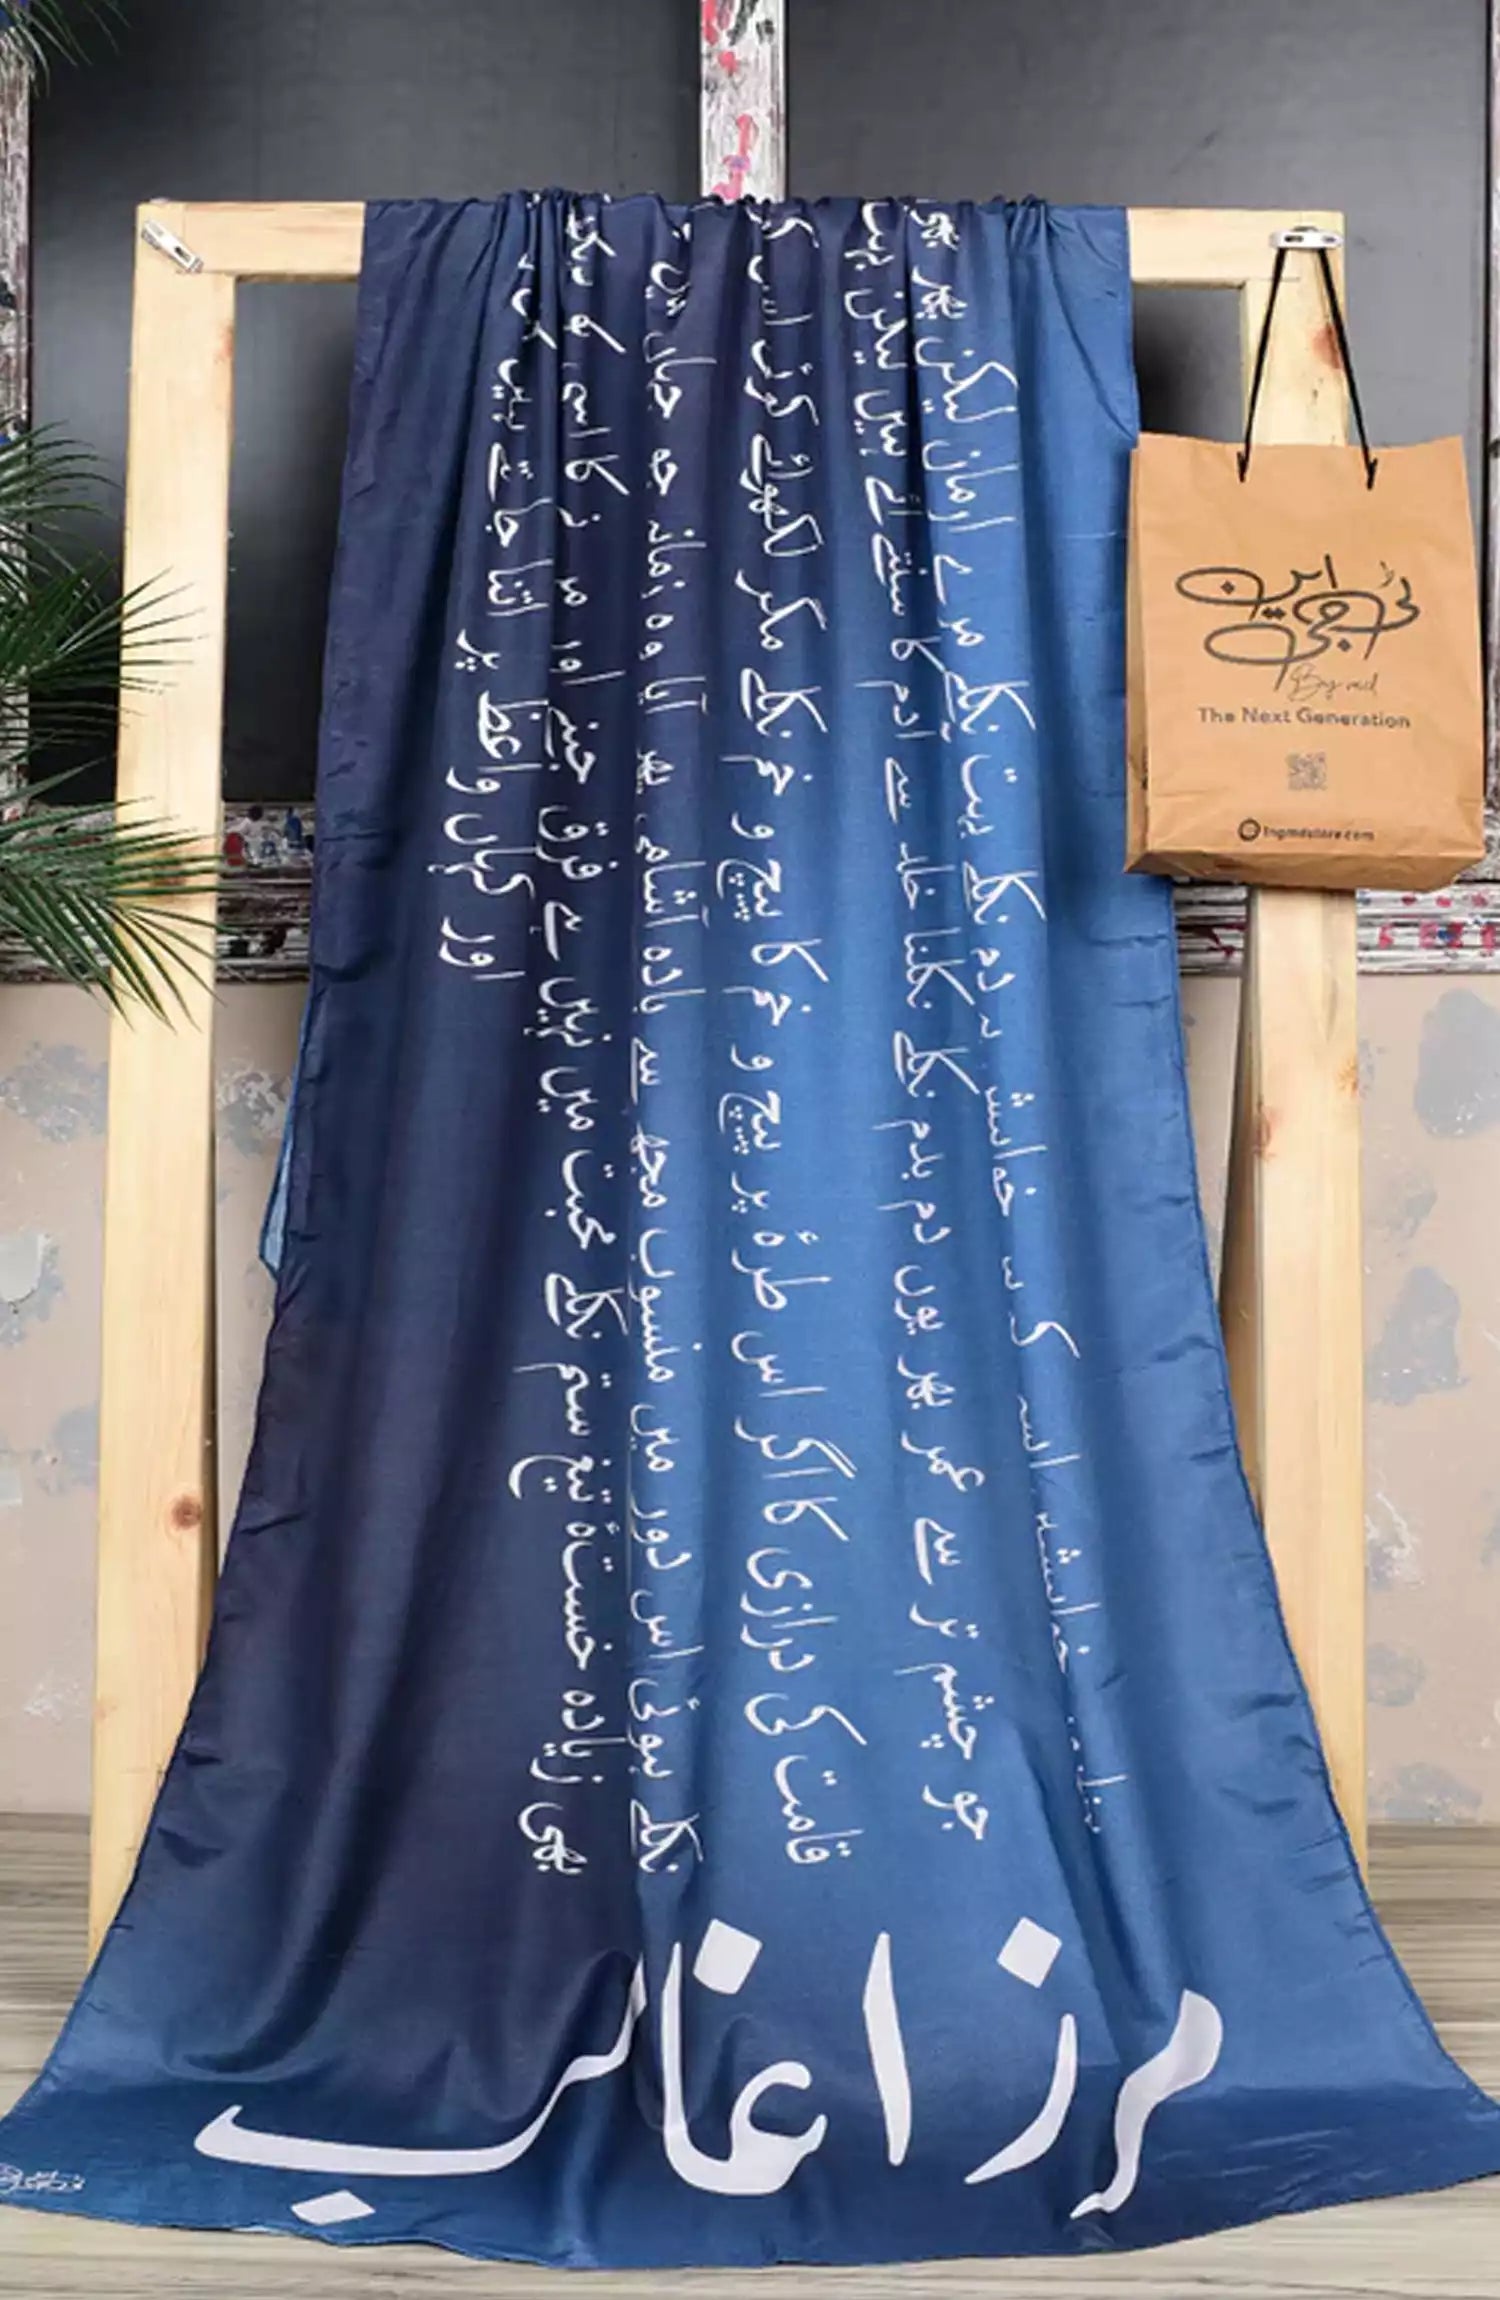 خواہش پہ دم نکلے بہت نکلے مرے ارمان لیکن پھر بھی
جو چشم تر سے عمر بھر یوں دم بدم نکلے نکلنا خلد سے آدم کا سنتے آئے ہیں لیکن بہت
قامت کی درازی کا اگر اس طرۂ پر پیچ و خم کا پیچ و خم نکلے مگر لکھوائے کوئی اس
نکلے ہوئی اس دور میں منسوب مجھ سے بادہ آشامی پھر آیا وہ زمانہ جو جہاں میں
بھی زیادہ خستۂ تیغ ستم نکلے محبت میں نہیں ہے فرق جینے اور مرنے کا اسی کو دیکھ
اور کہاں واعظ پر اتنا جانتے ہیں کل
مرزا غالب
ٹی این جی
The Next Generation